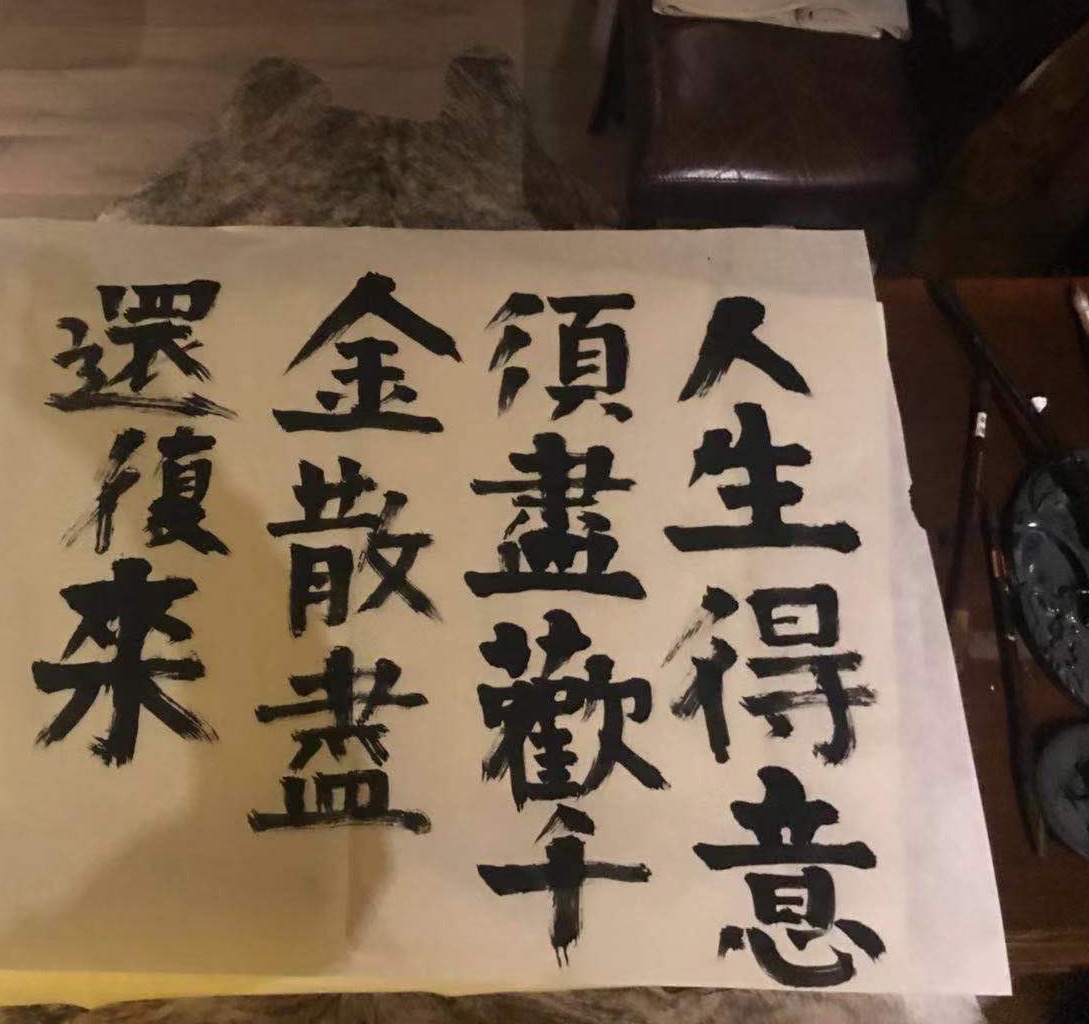 人生得意
須盡歡千
金散盡
還復來